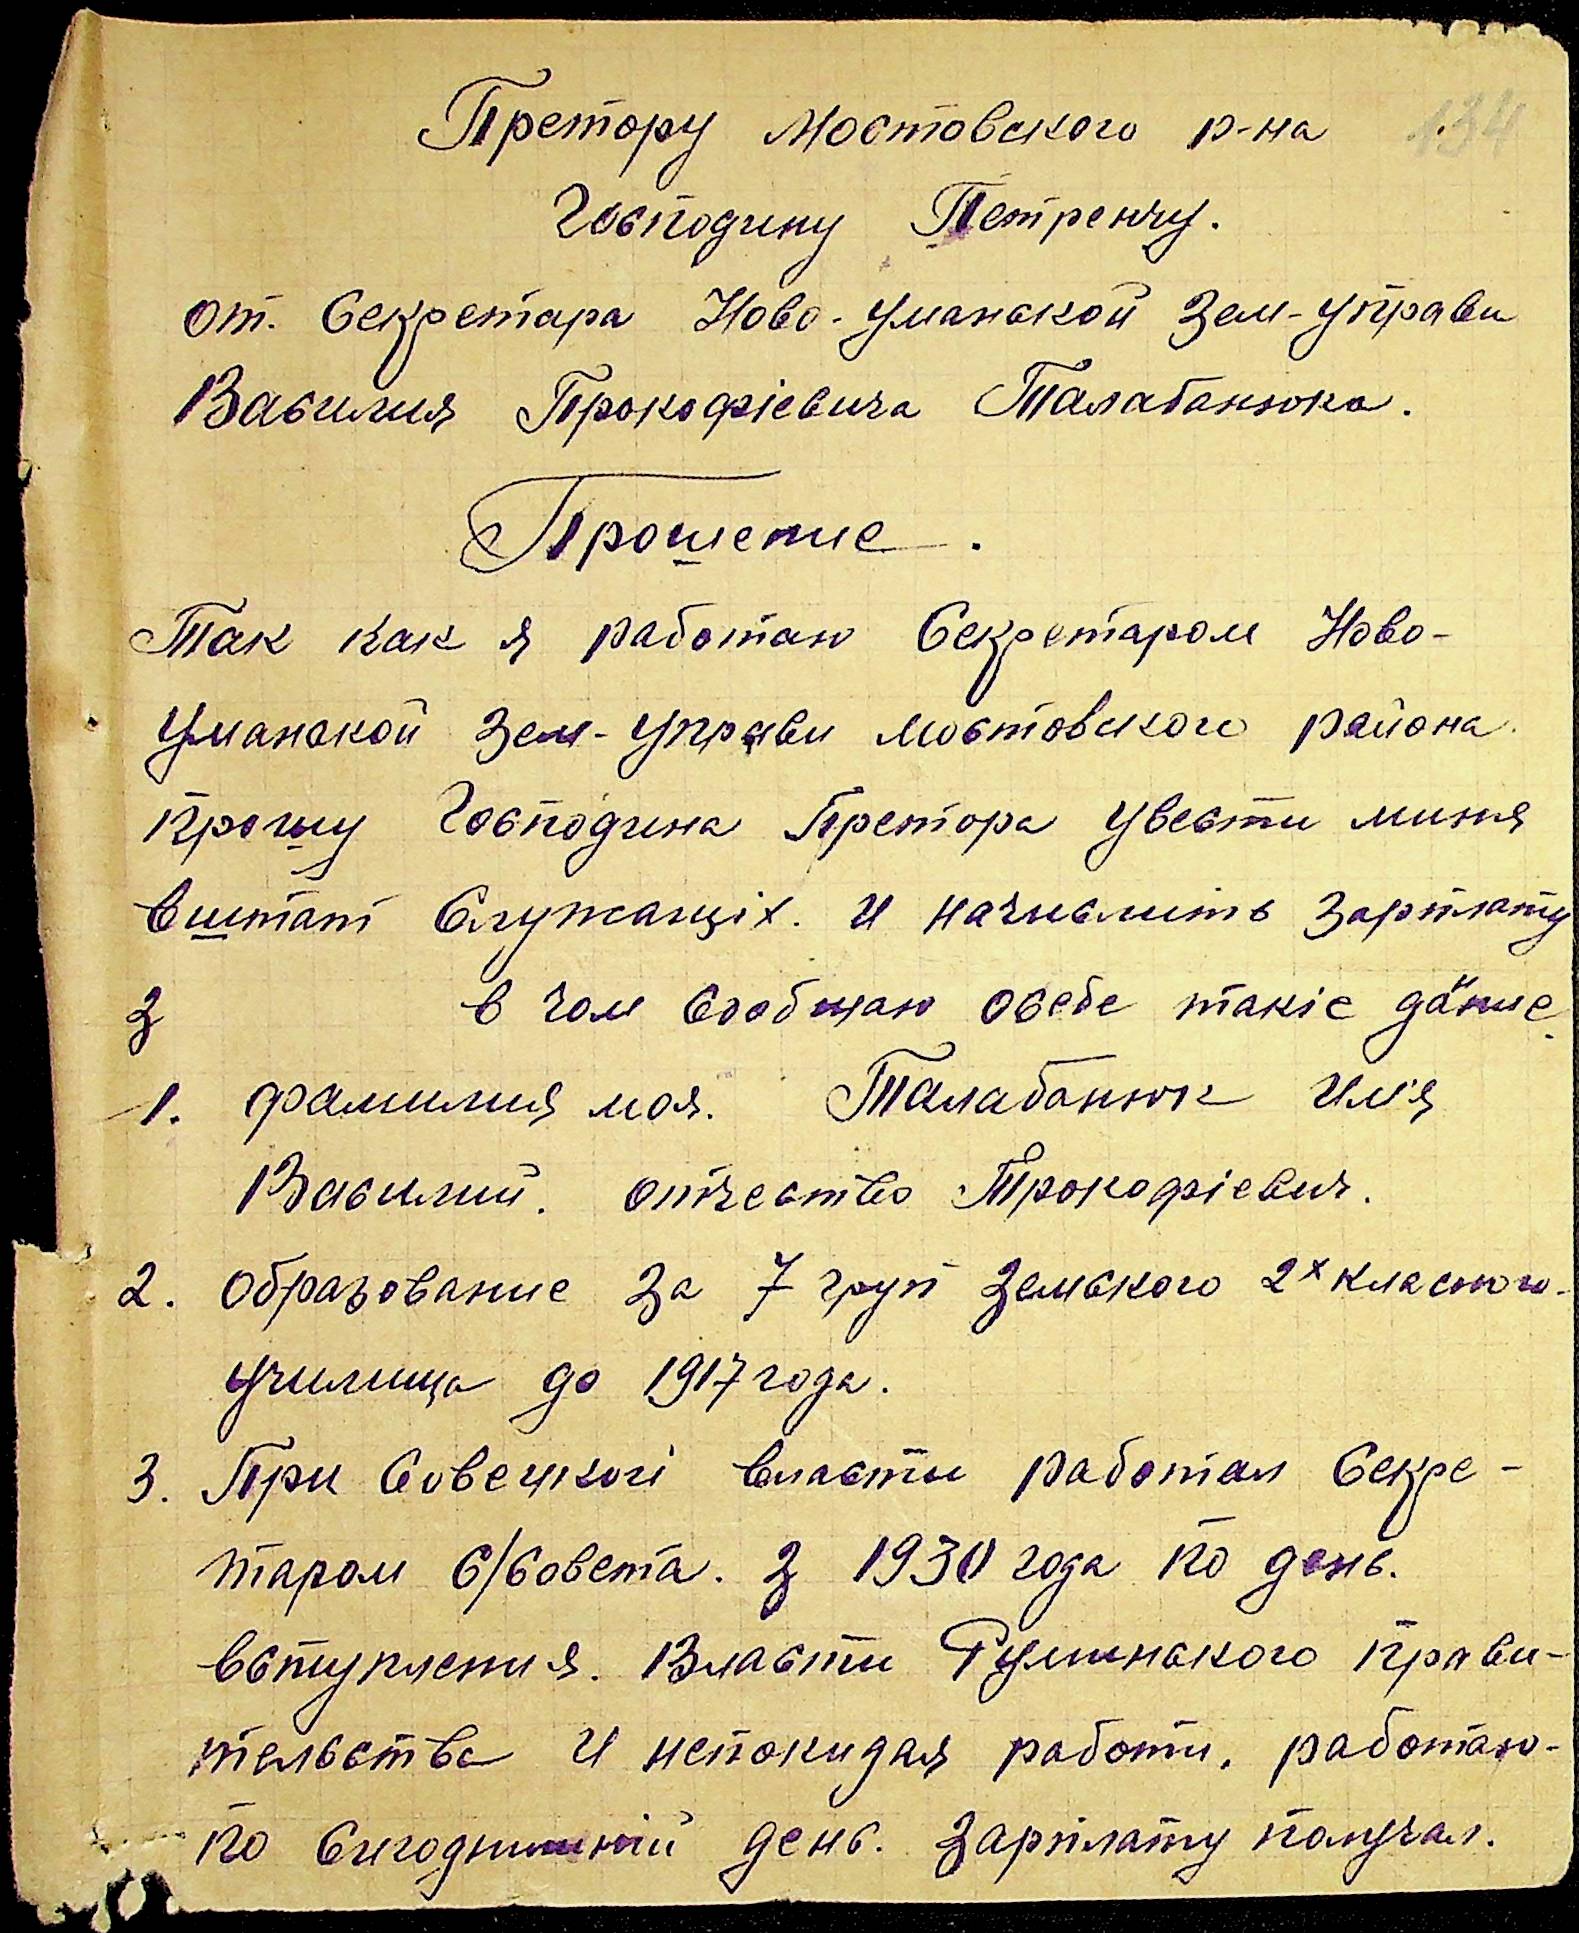 134
Претору Мостовского р-на
Господину Петренчу.
от. Секретара Ново-Уманской Зем-Управи
Василия Прокофіевича Талабанюка.
Прошение.
Так как я работаю Секретаром Ново-
Уманской Зем-Управи Мостовского района.
прошу Господина Претора увести миня
вштат Служащіх. и начислить зарплату
З в чом сообщаю осебе такіе даные.
1. фамилия моя. Талабанюк имʼя
Василий. отчество Прокофіевич.
2. образование за 7 груп земского 2х класного
училища до 1917 года.
3. При Советцкогі власти работал Секре-
таром С/Совета. З 1930 года по день.
вступления. Власти Румынского прави-
тельства и непокидая работи. работаю-
по сигоднишній день. зарплату получал.